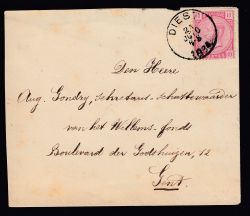 DIEST
Den Heere
Aug. Gondry, schretaris-schattewaarder
van het Willems-fonds
Boulevard der Godshuizen, 12
Gent.